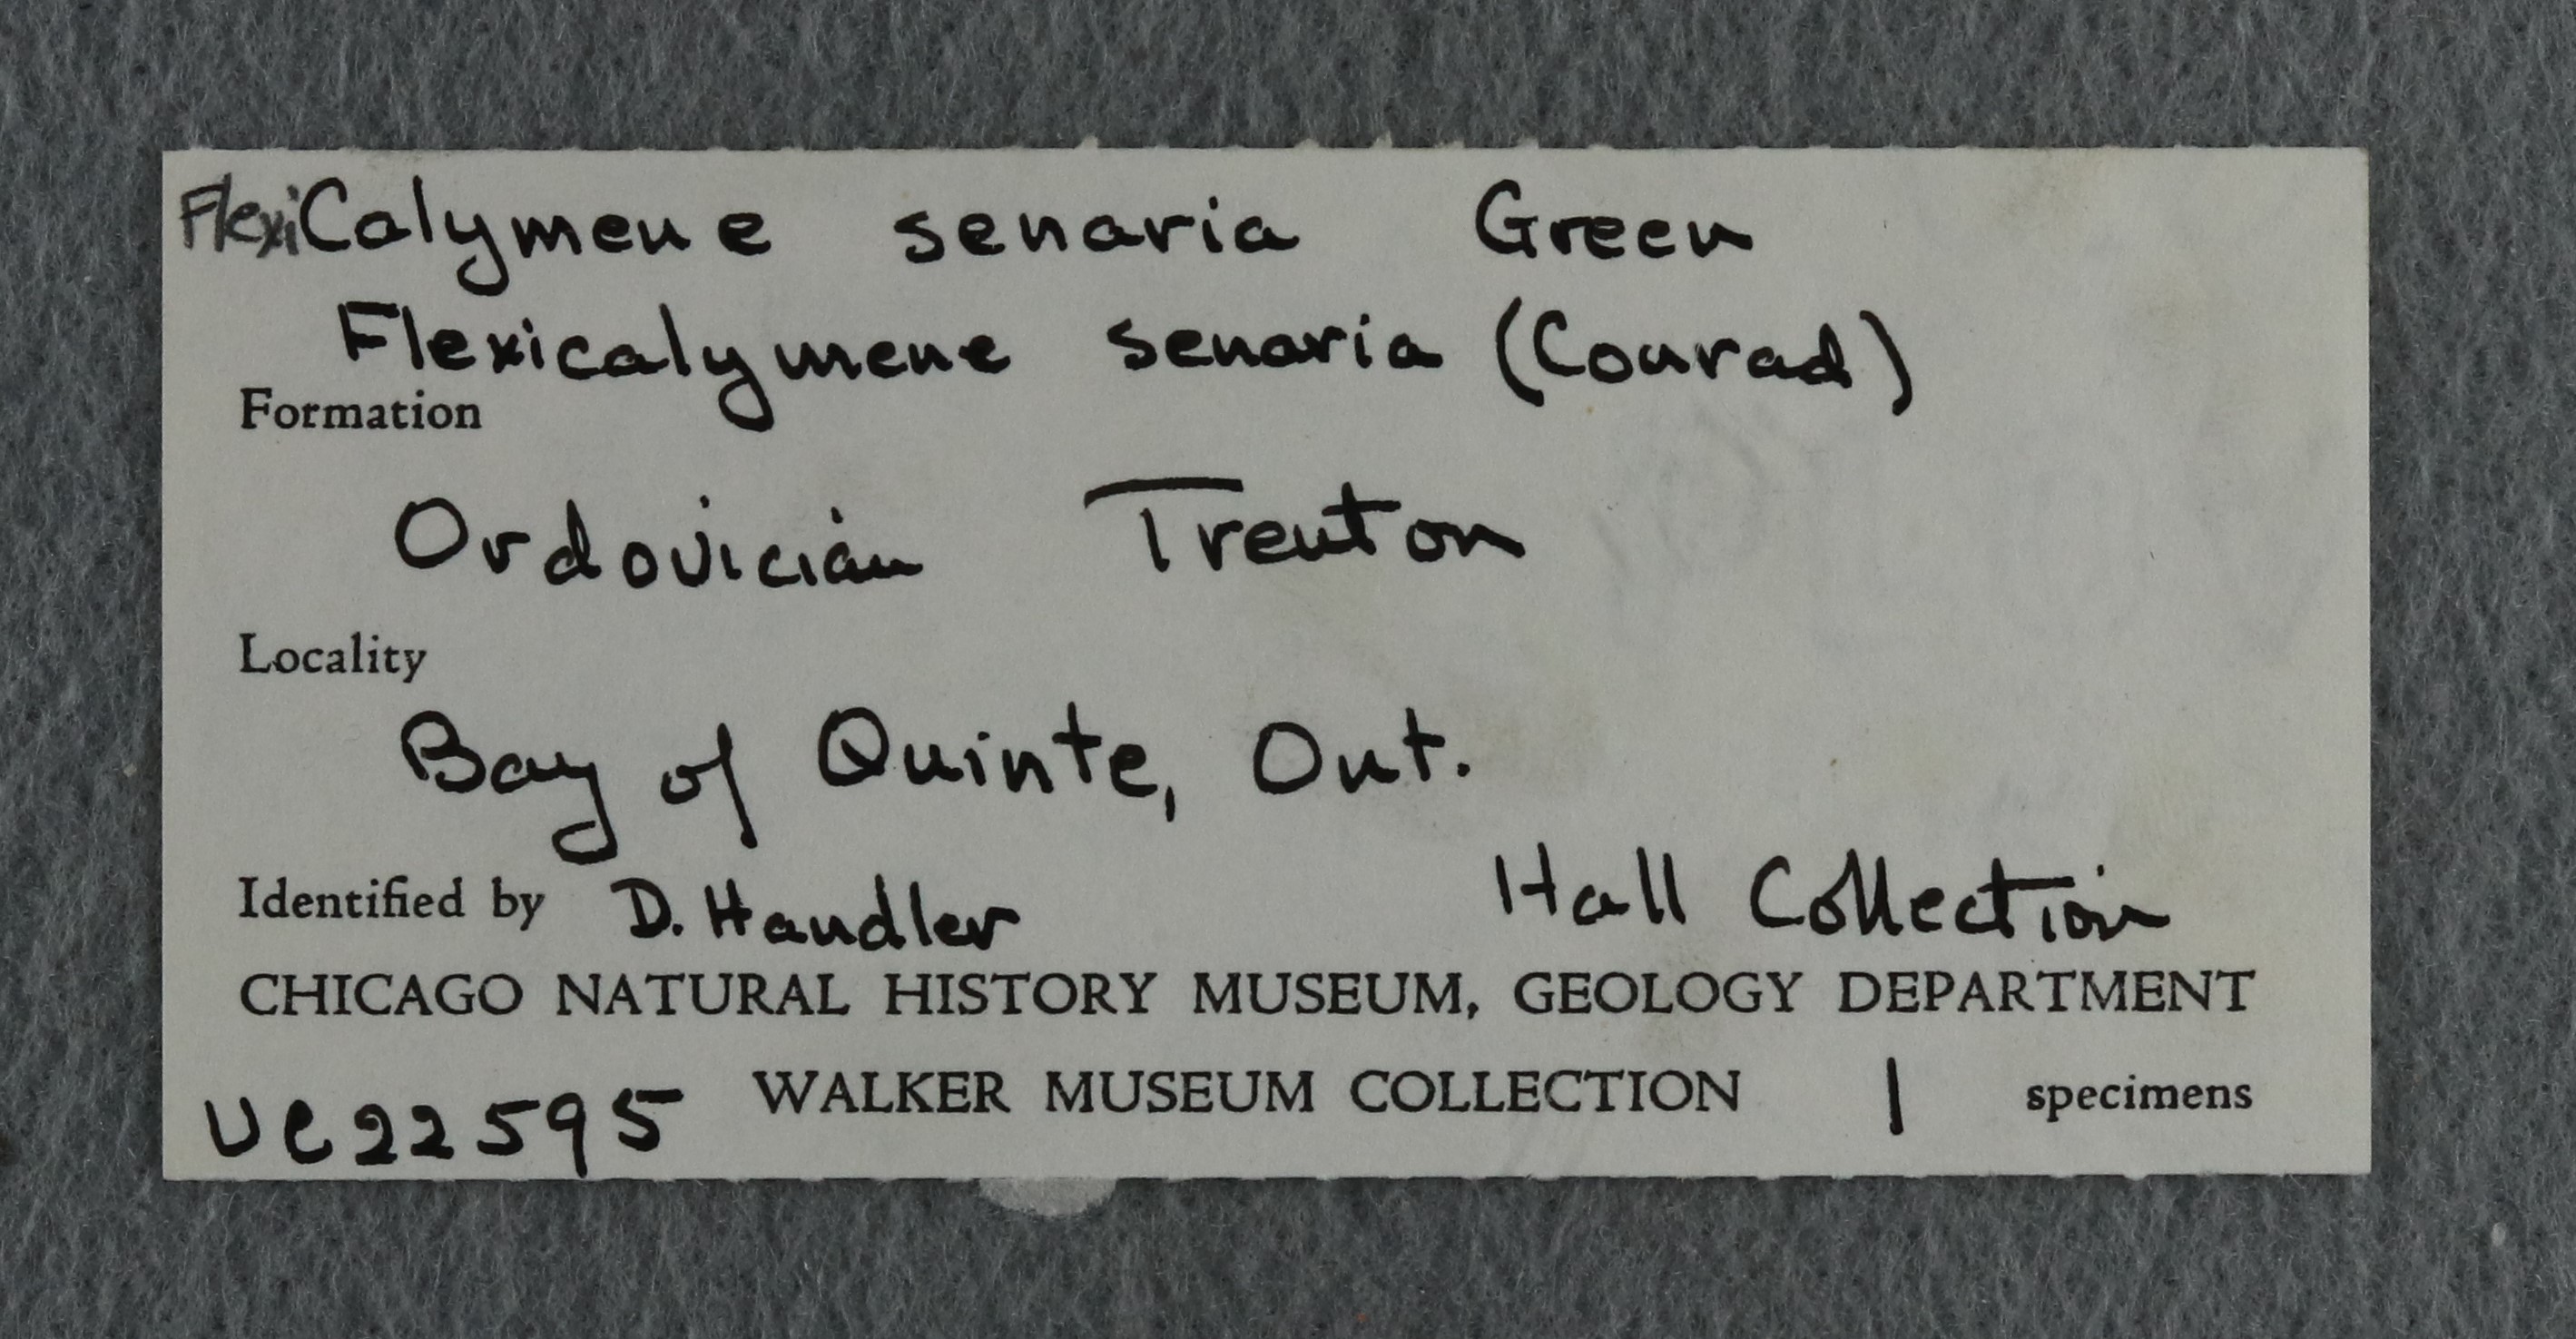 FlexiCalymene senaria Green
Flexicalymene senaria (Conrad)
Formation
Ordovician Trenton
Locality
Bay of Quinte, Ont.
Identified by D. Handler Hall Collection
CHICAGO NATURAL HISTORY MUSEUM, GEOLOGY DEPARTMENT
UC22595 WALKER MUSEUM COLLECTION 1 specimens